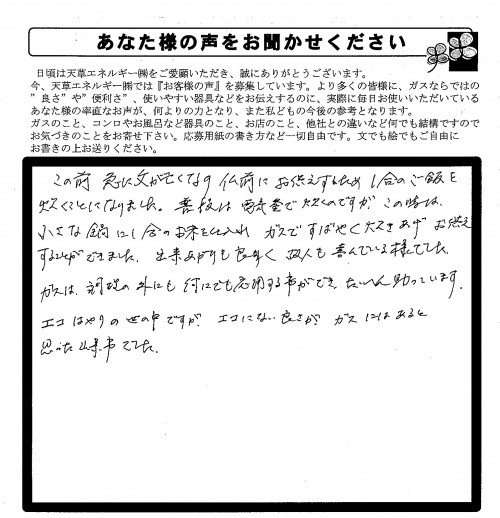 あなた様の声をお聞かせください
日頃は天草エネルギー㈱をご愛顧いただき、誠にありがとうございます。
今、天草エネルギー㈱では『お客様の声』を募集しています。より多くの皆様に、ガスならではの
"良さ"や"便利さ"、使いやすい器具などをお伝えするのに、実際に毎日お使いいただいている
あなた様の率直なお声が、何よりの力となり、また私どもの今後の参考となります。
ガスのこと、コンロやお風呂など器具のこと、お店のこと、他社との違いなど何でも結構ですので
お気づきのことをお寄せ下さい。応募用紙の書き方など一切自由です。文でも絵でもご自由に
お書きの上お送りください。
この前 急に父が亡くなり 仏前に お供えするため 1合のご飯を
炊くことになりました。普段は 電気釜で 炊くのですが この時は、
小さな鍋に1合のお米を仕入れ ガスですばやく炊きあげ お供え
することができました。出来あがりも良く 故人も喜んでいる様でした。
ガスは、調理の外にも 何にでも応用する事ができ たいへん助っています。
エコ ばやりの世の中ですが エコにない良さが ガスにはあると
思った出来事でした。